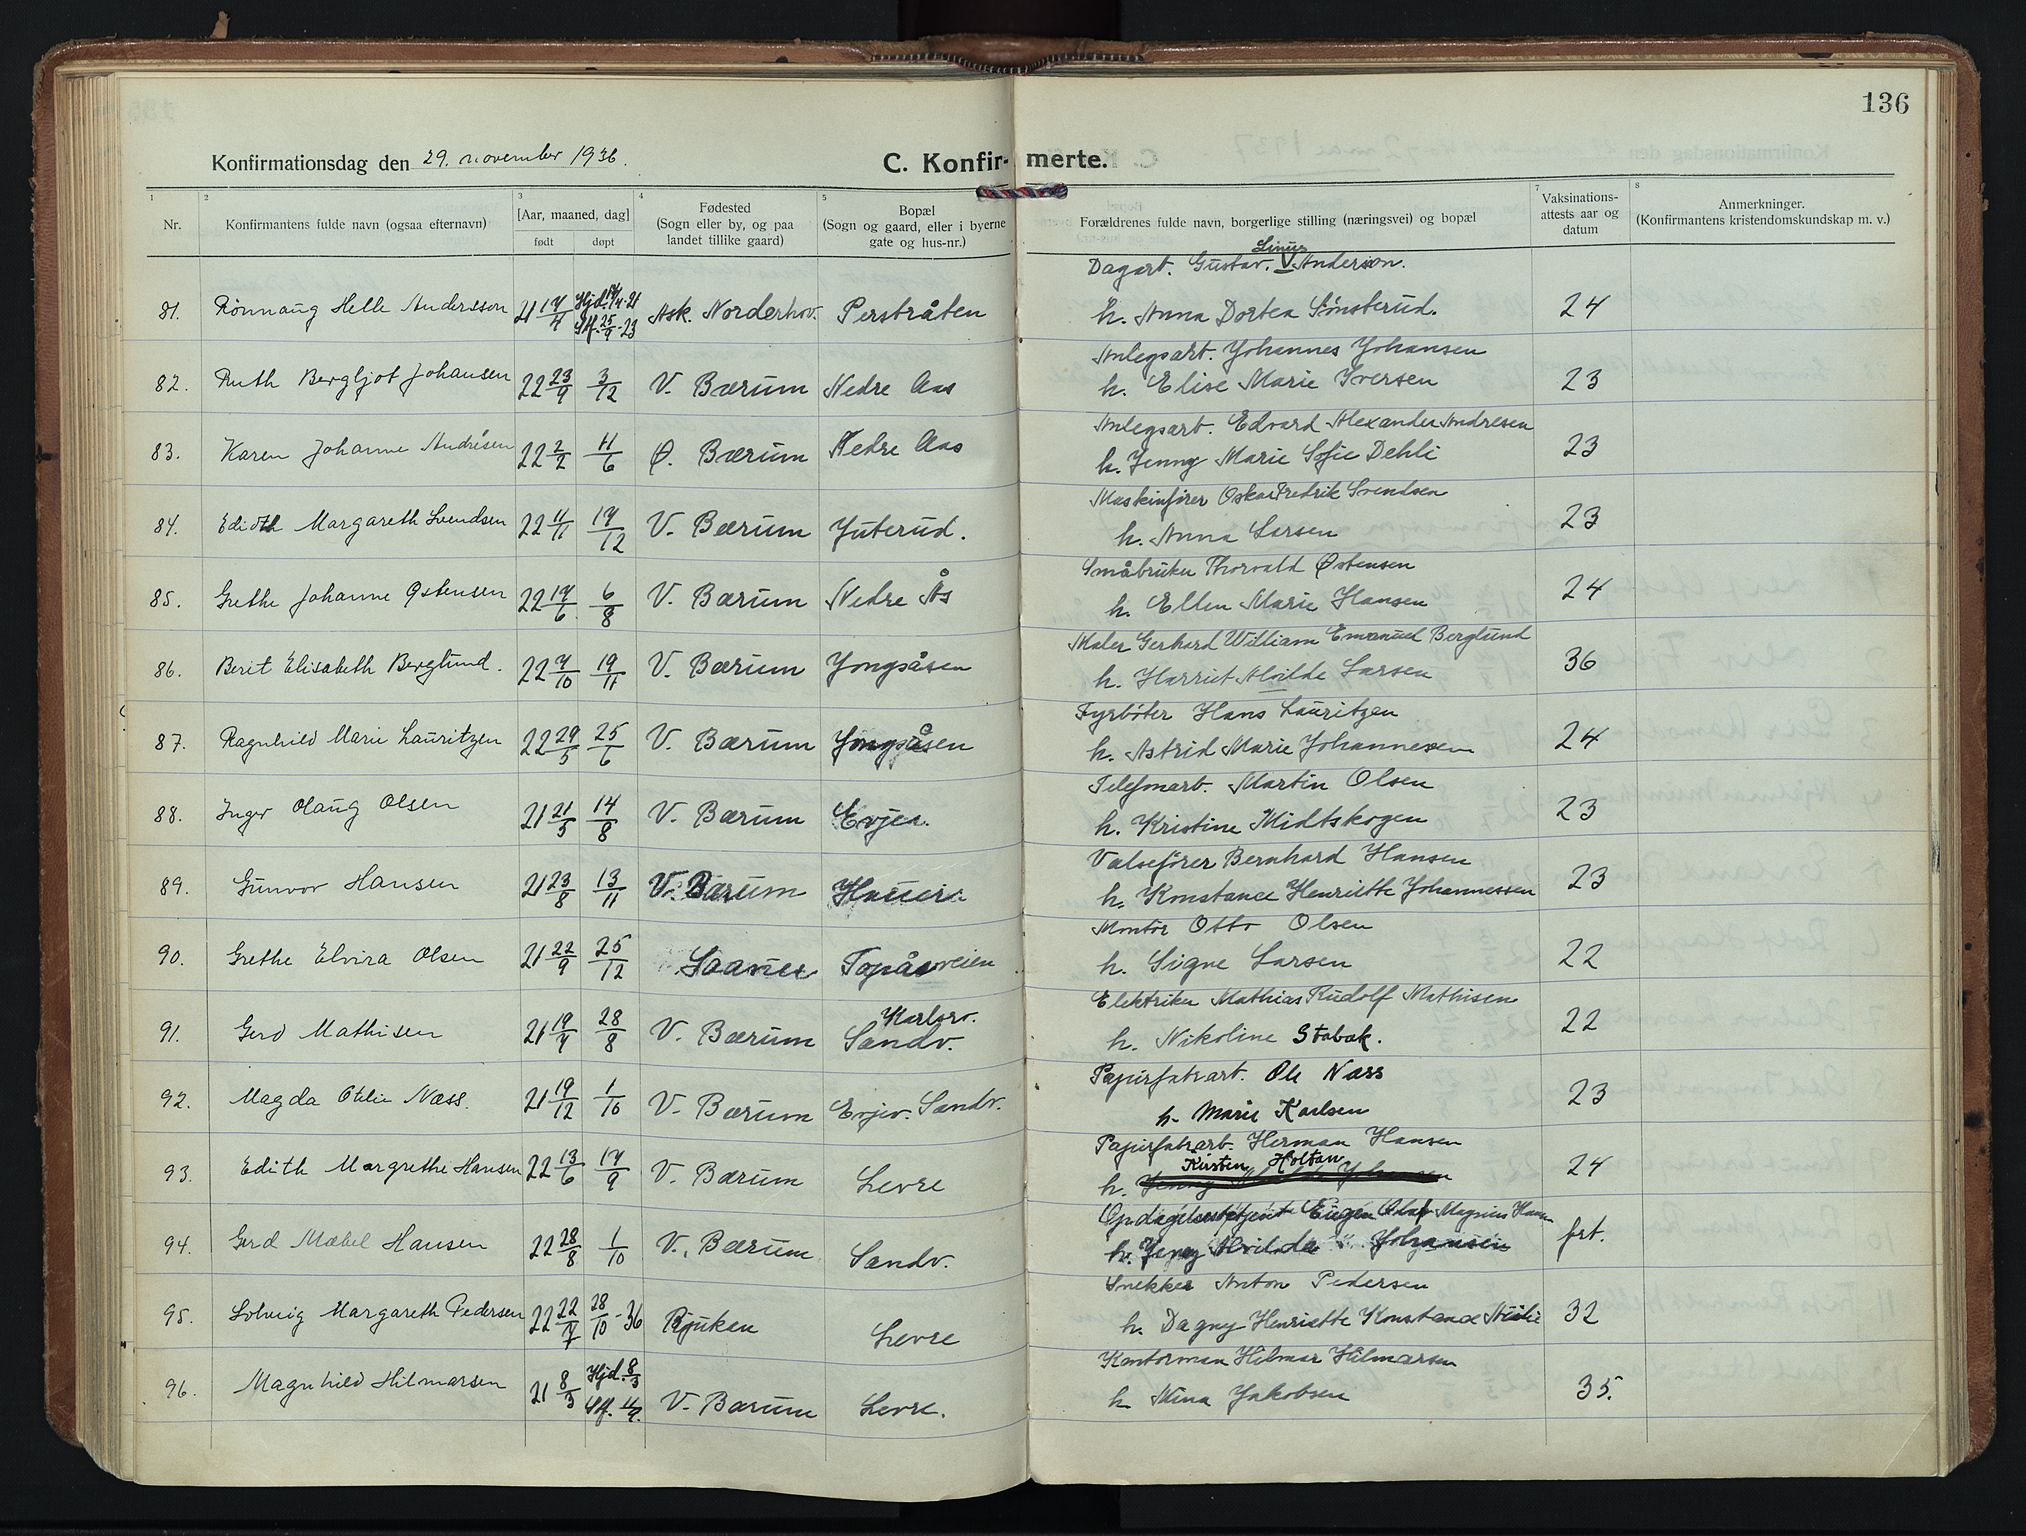 136
Konfirmationsdag den 29. november 1936.
C. Konfir- merte.
1 2 3 4 5 7 8
Nr.
Konfirmantens fulde navn (ogsaa efternavn)
[Aar, maaned, dag]
født døpt
Fødested
(Sogn eller by, og paa
landet tillike gaard)
Bopæl
(Sogn og gaard, eller i byerne
gate og hus-nr.)
Forældrenes fulde navn, borgerlige stilling (næringsvei) og bopæl
Vaksinations-
attests aar og
datum
Anmerkninger.
(Konfirmantens kristendomskundskap m. v.)
Linus
Dagarb. Gustav V Anderson.
81. Rønnaug Helle Andersson 21 17/4 Hjd. 17/4-21 Stf. 25/9-23 Ask. Norderhov. Perstråten h. Anna Dortea Sønsterud. 24
Anlegsarb. Johannes Johansen
82. Ruth Bergljot Johansen 22 23/9 3/12 V. Bærum Nedre Aas h. Elise Marie Iversen 23
Anlegsarb. Edvard Alexander Andresen
83. Karen Johanne Andresen 22 2/2 11/6 Ø. Bærum Nedre Aas h. Jenny Marie Sofie Dehli 23
Maskinfører Oskar Fredrik Svendsen
84. Edidth Margareth Svendsen 22 11/11 17/12 V. Bærum Juterud. h. Anna Larsen 23
Småbruker Thorvald Østensen
85. Grethe Johanne Østensen 22 17/6 6/8 V. Bærum Nedre Ås h. Ellen Marie Hansen 24
Maler Gerhard William Emanuel Berglund
86. Berit Elisabeth Berglund. 22 7/10 19/11 V. Bærum Jongsåsen h. Harriet Alvilde Larsen 36
Fyrbøter Hans Lauritzen
87. Ragnhild Marie Lauritzen 22 29/5 25/6 V. Bærum Jongsåsen h. Astrid Marie Johannesen 24
Telefonarb. Martin Olsen
88. Inger Olaug Olsen 21 21/5 14/8 V. Bærum Evjen. h. Kristine Midtskogen 23
Valsefører Bernhard Hansen
89. Gunvor Hansen 21 23/8 13/11 V. Bærum h. Konstance Henriette Johannessen 23
Montør Otto Olsen
90. Grethe Elvira Olsen 21 22/9 25/12 Topåsveien h. Signe Larsen 22
Elektriker Mathias Rudolf Mathisen
Karlsro.
91. Gerd Mathisen 21 19/7 28/8 V. Bærum Sandv. h. Nikoline Stabæk. 22
Papirfabrart. Ole Næss
92. Magda Otelie Næss. 21 19/12 1/10 V. Bærum Evjev. Sandv. h. Marie Karlsen 23
Papirfabrarb. Herman Hansen
Kirsten Holtan
93. Edith Margrethe Hansen 22 13/6 17/9 V. Bærum Levre h. 24
Opdagelsesbetjent Eugen Olaf Magnus Hansen
94. Gerd Mabel Hansen 22 28/8 1/10 V. Bærum Sandv. h. Jenny Alvilda Johansen frt.
Snekker Anton Pedersen
95. Solveig Margareth Pedersen 22 22/7 28/10-36 Rjuken Levre h. Dagny Henriette Konstance 32
Kontorman Hilmar Hilmarsen
96. Magnhild Hilmarsen 21 8/3 Hjd. 8/3 Stf. 11/9. V. Bærum Levre. h. Mina Jakobsen 35.